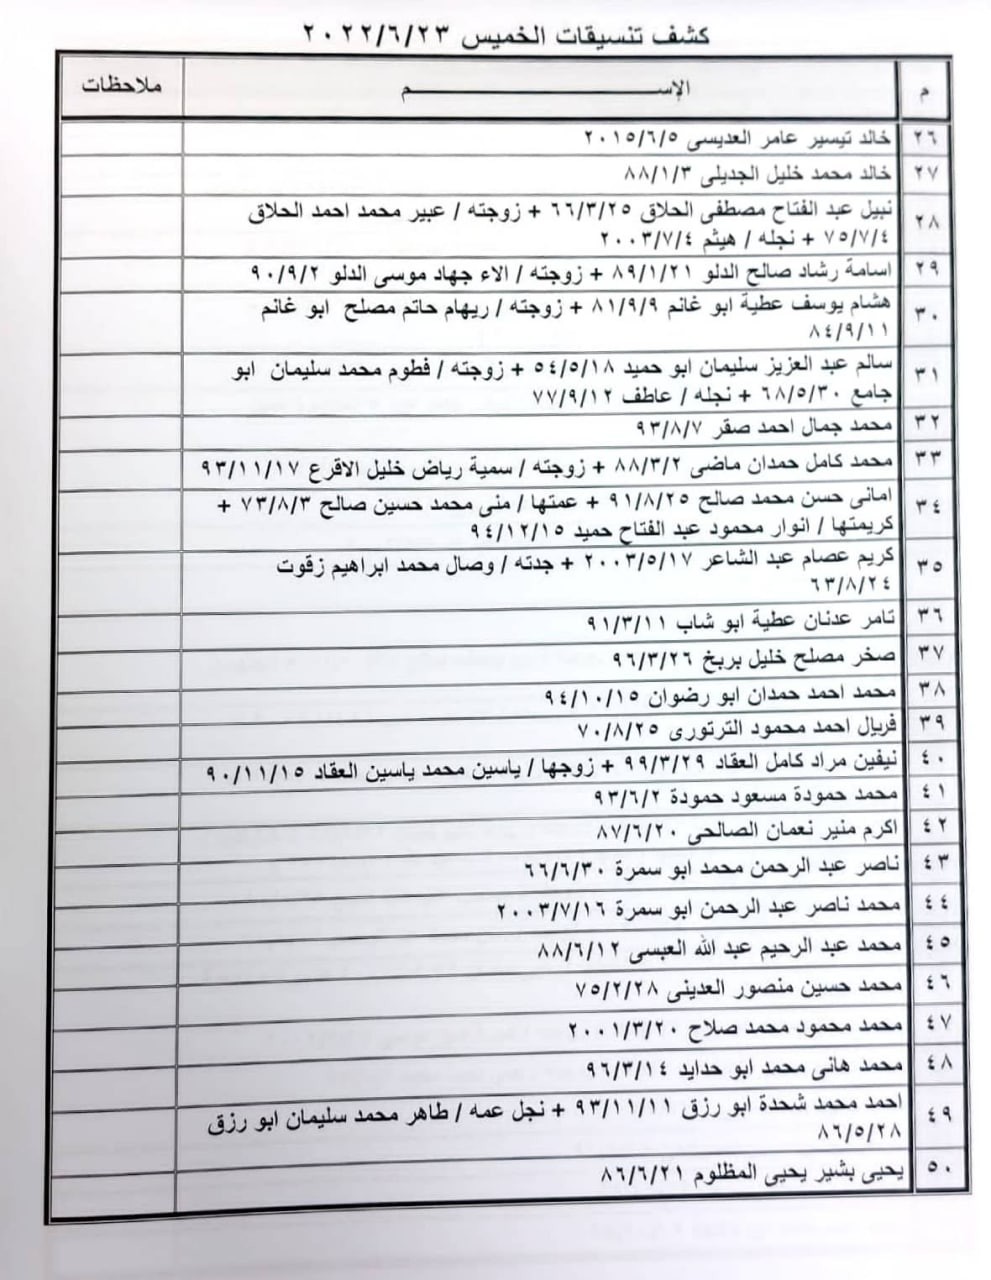 كشف تنسيقات الخميس ٢٠٢٢/٦/٢٣
م الإســـــــــــــــــــــــــم ملاحظات
٢٦ خالد تيسير عامر العديسى ٢٠١٥/٦/٥
٢٧ خالد محمد خليل الجديلى ٨٨/١/٣
٢٨ نبيل عبد الفتاح مصطفى الحلاق ٦٦/٣/٢٥ + زوجته / عبير محمد احمد الحلاق
٧٥/٧/٤ + نجله / هيثم ٢٠٠٣/٧/٤
٢٩ اسامة رشاد صالح الدلو ٨٩/١/٢١ + زوجته / الاء جهاد موسى الدلو ٩٠/٩/٢
٣٠ هشام يوسف عطية ابو غانم ٨١/٩/٩ + زوجته / ريهام حاتم مصلح ابو غانم
٨٤/٩/١١
٣١ سالم عبد العزيز سليمان ابو حميد ٥٤/٥/١٨ + زوجته / فطوم محمد سليمان ابو
جامع ٦٨/٥/٣٠ + نجله / عاطف ٧٧/٩/١٢
٣٢ محمد جمال احمد صقر ٩٣/٨/٧
٣٣ محمد كامل حمدان ماضى ٨٨/٣/٢ + زوجته / سمية رياض خليل الاقرع ٩٣/١١/١٧
٣٤ امانى حسن محمد صالح ٩١/٨/٢٥ + عمتها / منى محمد حسين صالح ٧٣/٨/٣ +
كريمتها / انوار محمود عبد الفتاح حميد ٩٤/١٢/١٥
٣٥ كريم عصام عبد الشاعر ٢٠٠٣/٥/١٧ + جدته / وصال محمد ابراهيم زقوت
٦٣/٨/٢٤
٣٦ تامر عدنان عطية ابو شاب ٩١/٣/١١
٣٧ صخر مصلح خليل بربخ ٩٦/٣/٢٦
٣٨ محمد احمد حمدان ابو رضوان ٩٤/١٠/١٥
٣٩ فريال احمد محمود الترتورى ٧٠/٨/٢٥
٤٠ نيفين مراد كامل العقاد ٩٩/٣/٢٩ + زوجها / ياسين محمد ياسين العقاد ٩٠/١١/١٥
٤١ محمد حمودة مسعود حمودة ٩٣/٦/٢
٤٢ اكرم منير نعمان الصالحى ٨٧/٦/٢٠
٤٣ ناصر عبد الرحمن محمد ابو سمرة ٦٦/٦/٣٠
٤٤ محمد ناصر عبد الرحمن ابو سمرة ٢٠٠٣/٧/١٦
٤٥ محمد عبد الرحيم عبد الله العبسى ٨٨/٦/١٢
٤٦ محمد حسين منصور العدينى ٧٥/٢/٢٨
٤٧ محمد محمود محمد صلاح ٢٠٠١/٣/٢٠
٤٨ محمد هانى محمد ابو حدايد ٩٦/٣/١٤
٤٩ احمد محمد شحدة ابو رزق ٩٣/١١/١١ + نجل عمه / طاهر محمد سليمان ابو رزق
٨٦/٥/٢٨
٥٠ يحيى بشير يحيى المظلوم ٨٦/٦/٢١